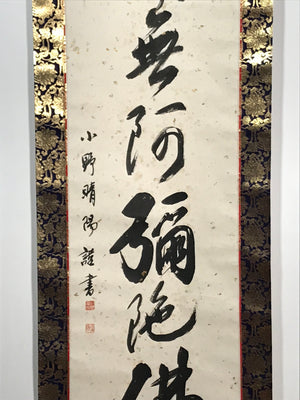 無阿彌陀佛
小野晴陽謹書